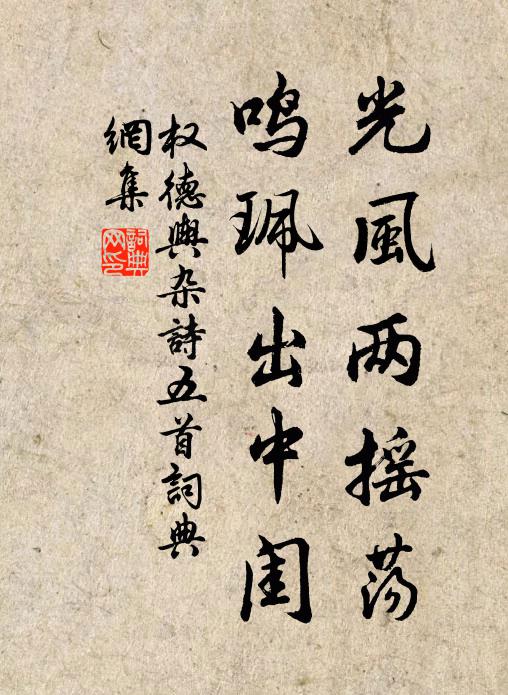 光風两摇荡
鸣珮出中闺
权德舆杂詩五首詞典
網集
詞典网印